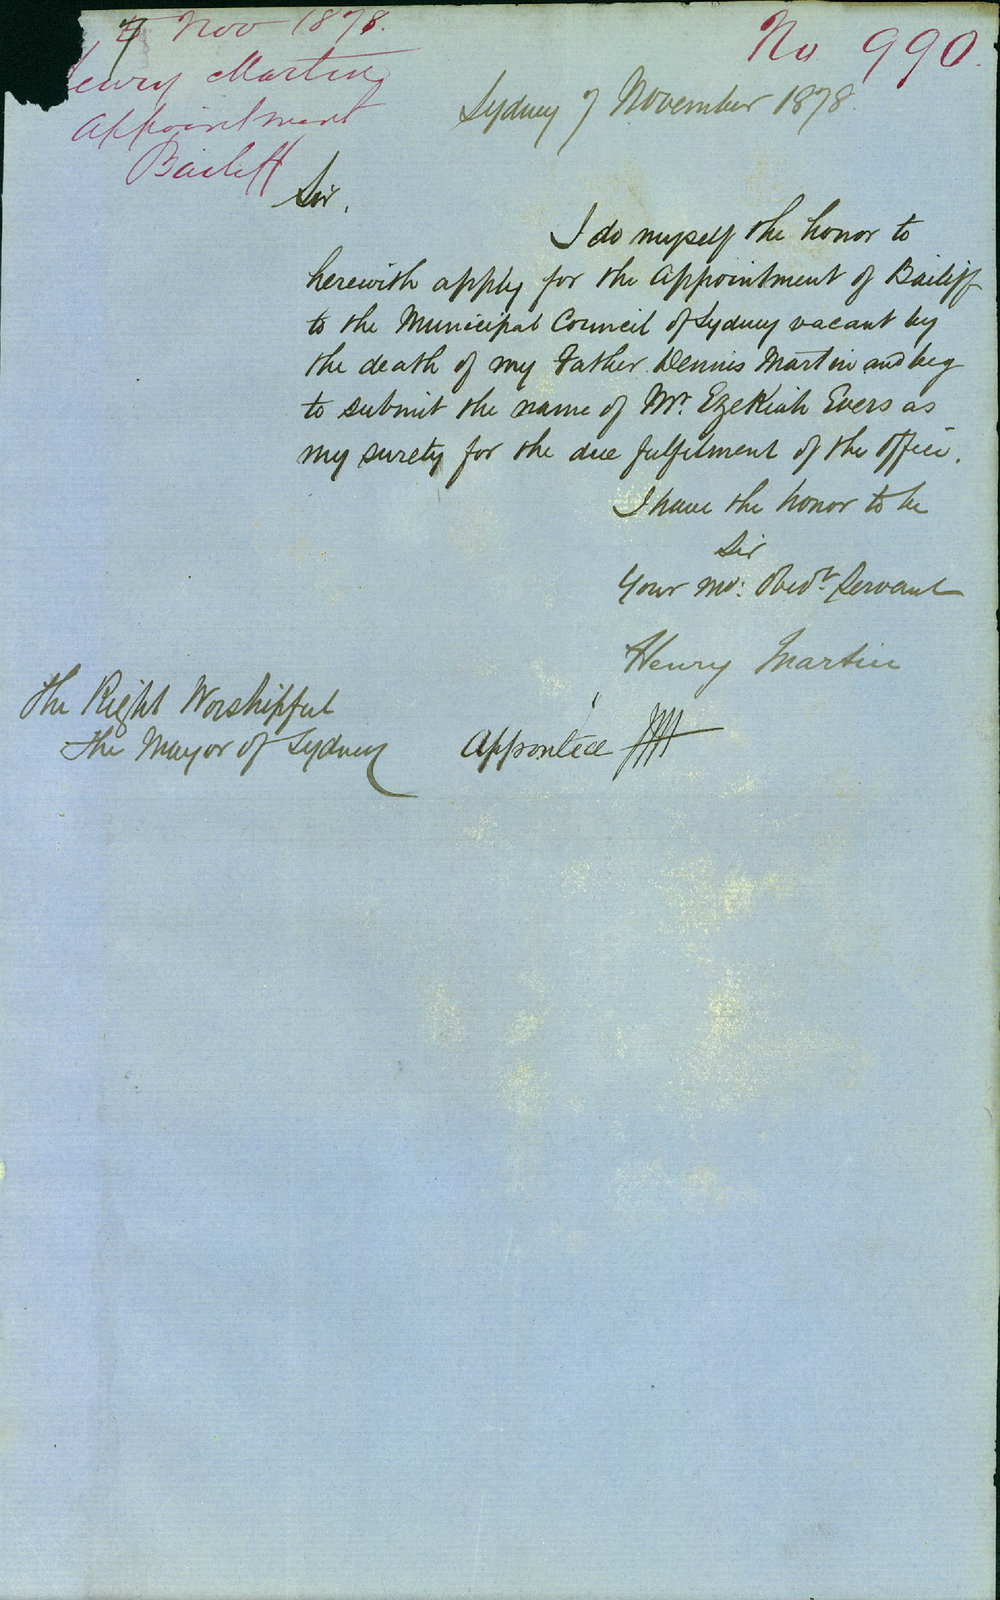 7 Nov 1878.
Henry Martin
Appointment
Bailiff
No 990.
Sydney 7 November 1878.
Sir,
I do myself the honor to
herewith apply for the Appointment of Bailiff
to the Municipal Council of Sydney vacant by
the death of my Father Dennis Martin and beg
to submit the name of Mr Ezekiah Evers as
my surety for the due fulfilment of the Office.
I have the honor to be
Sir
Your Mo: Obedt Servant
Henry Martin
The Right Worshipful
The Mayor of Sydney
Appointed